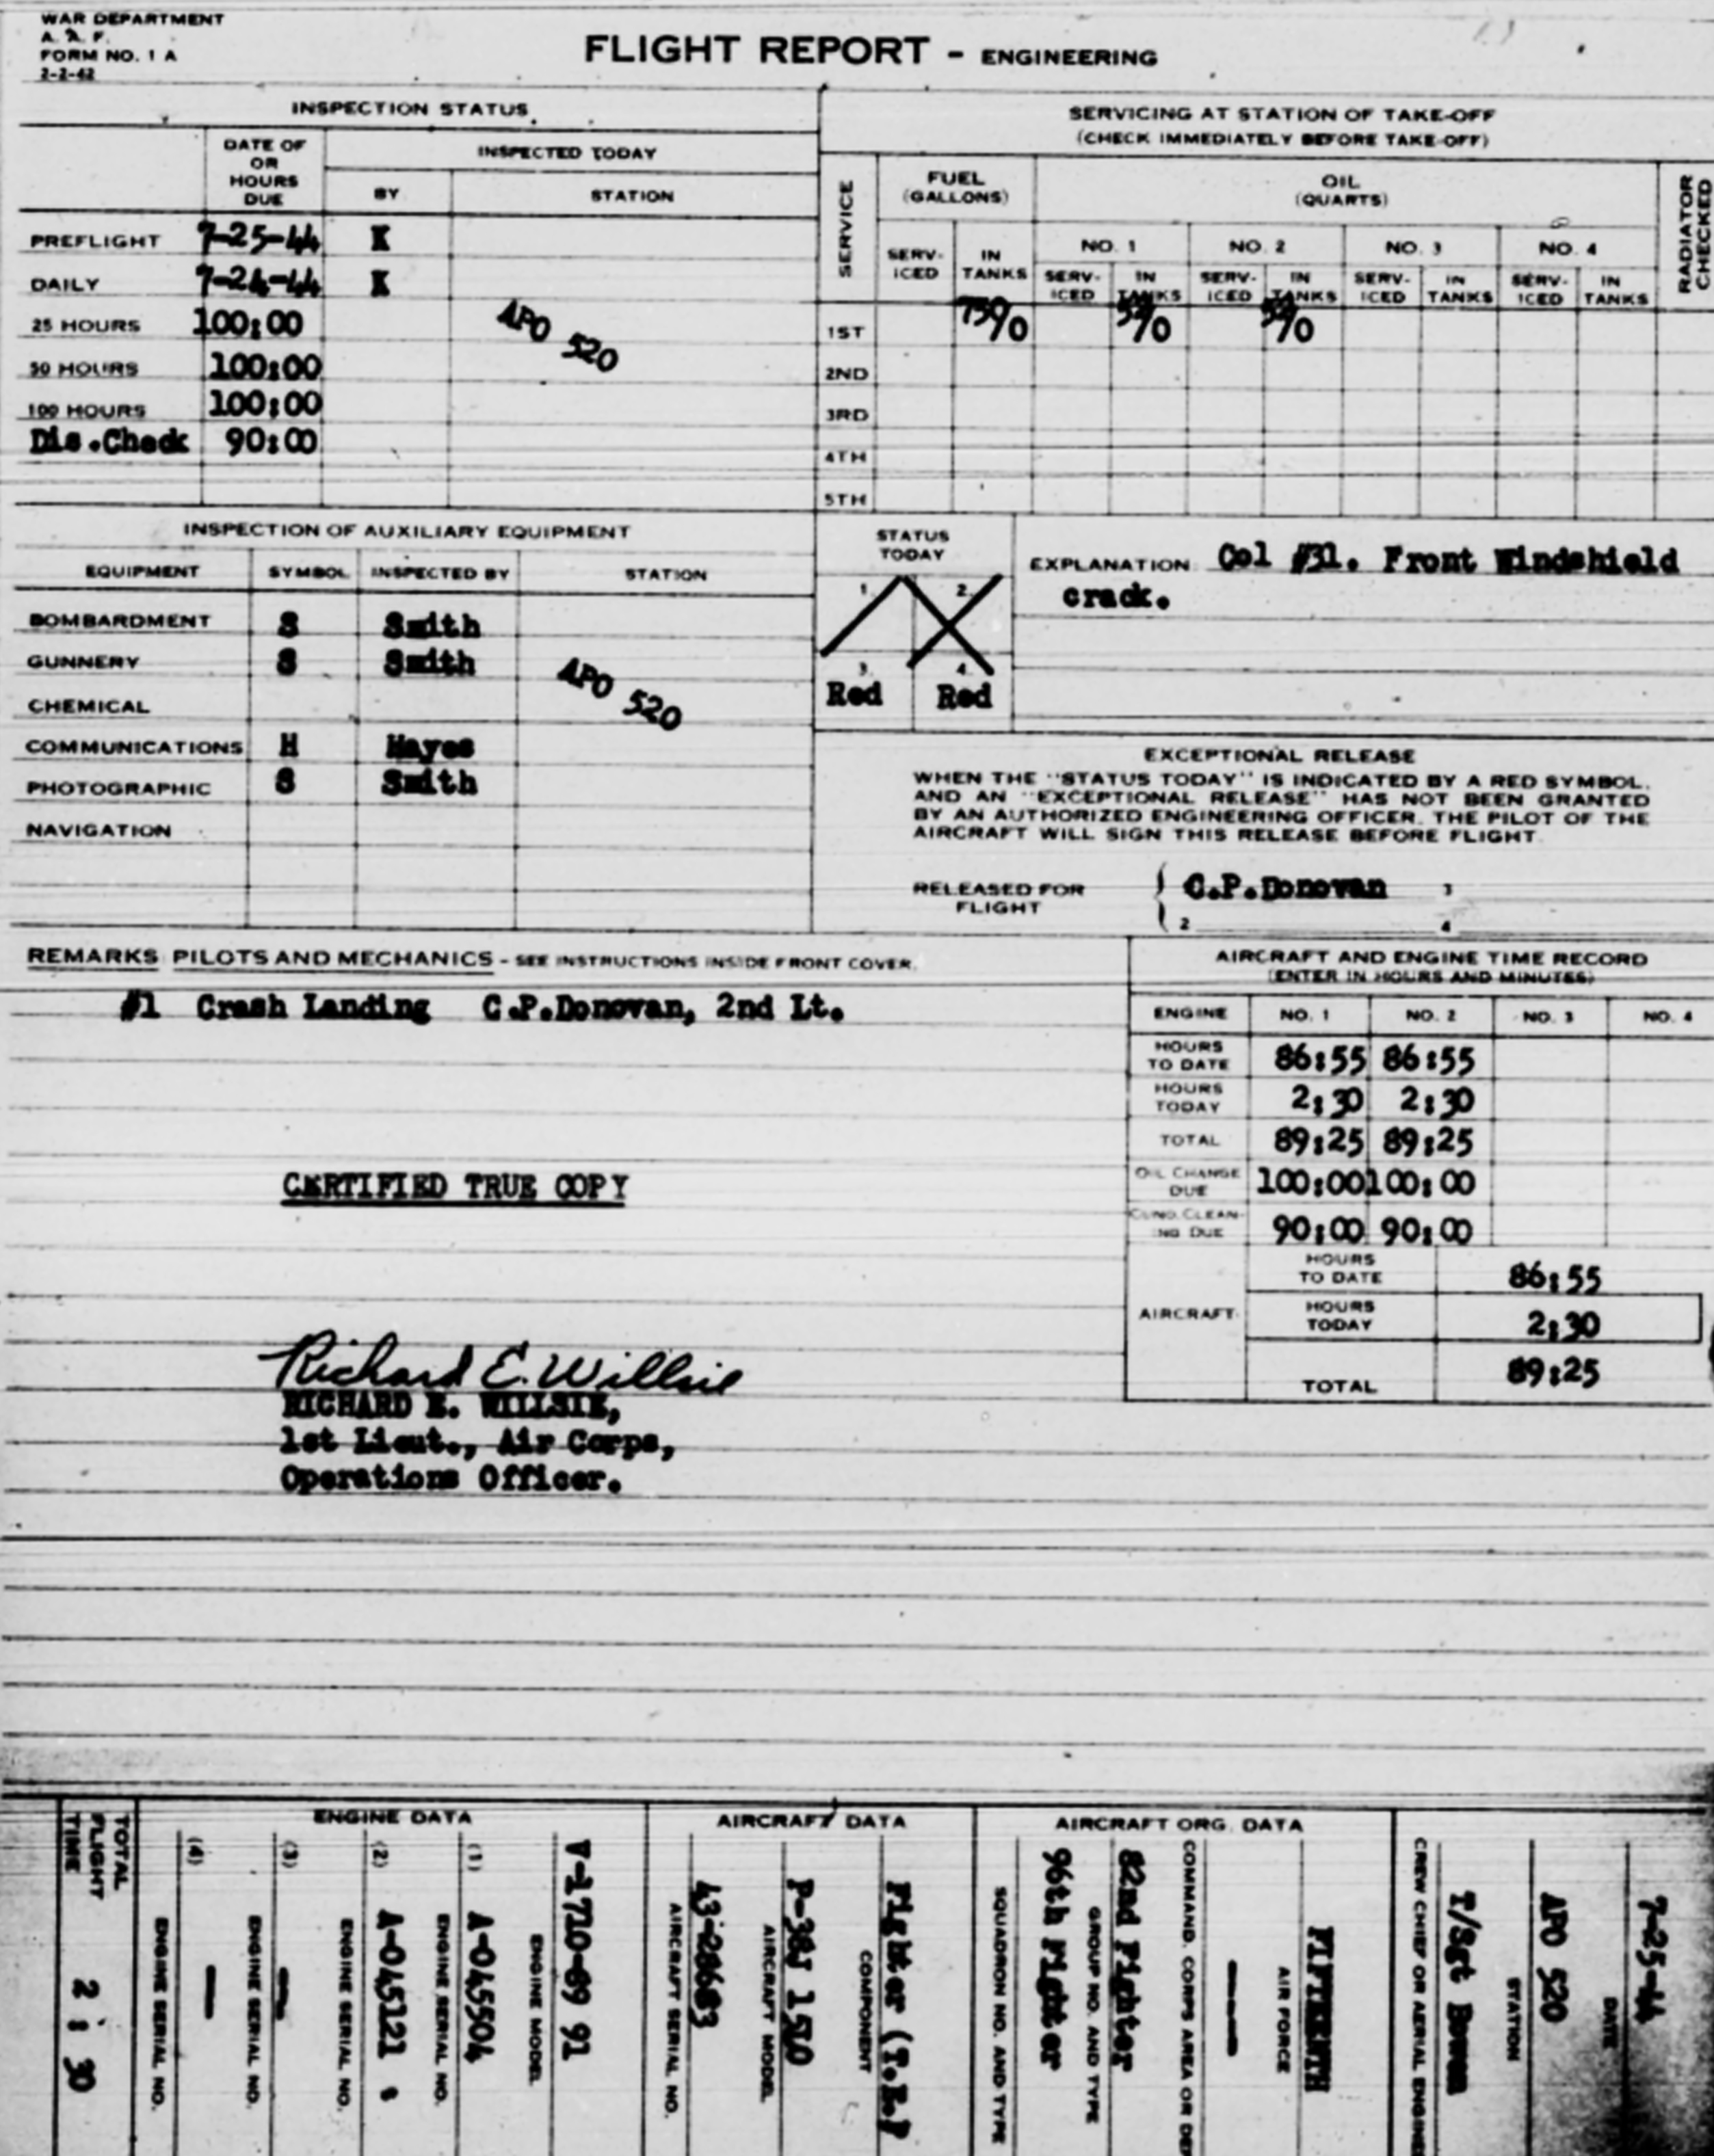 WAR DEPARTMENT
A. A. F.
FORM NO. 1 A
2-2-42
FLIGHT REPORT - ENGINEERING
INSPECTION STATUS
DATE OF OR HOURS DUE
INSPECTED TODAY
BY
STATION
PREFLIGHT 7-25-44 K
DAILY 7-24-44 K
25 HOURS 100:00
APO 520
50 HOURS 100:00
100 HOURS 100:00
Dis.Check 90:00
SERVICING AT STATION OF TAKE-OFF
(CHECK IMMEDIATELY BEFORE TAKE-OFF)
SERVICE
FUEL (GALLONS)
OIL (QUARTS)
RADIATOR CHECKED
NO. 1 NO. 2 NO. 3 NO. 4
SERV-ICED IN TANKS SERV-ICED IN TANKS SERV-ICED IN TANKS SERV-ICED IN TANKS SERV-ICED IN TANKS
1ST
2ND
3RD
4TH
5TH
INSPECTION OF AUXILIARY EQUIPMENT
EQUIPMENT SYMBOL INSPECTED BY STATION
BOMBARDMENT S Smith
GUNNERY S Smith
APO 520
CHEMICAL
COMMUNICATIONS H Hayes
PHOTOGRAPHIC S Smith
NAVIGATION
STATUS TODAY
1. 2.
3. 4.
Red Red
EXPLANATION Col #31. Front Windshield
crack.
EXCEPTIONAL RELEASE
WHEN THE "STATUS TODAY" IS INDICATED BY A RED SYMBOL,
AND AN "EXCEPTIONAL RELEASE" HAS NOT BEEN GRANTED
BY AN AUTHORIZED ENGINEERING OFFICER, THE PILOT OF THE
AIRCRAFT WILL SIGN THIS RELEASE BEFORE FLIGHT.
RELEASED FOR FLIGHT C.P.Donovan 3
2 4
REMARKS: PILOTS AND MECHANICS - SEE INSTRUCTIONS INSIDE FRONT COVER.
#1 Crash Landing C.P.Donovan, 2nd Lt.
CERTIFIED TRUE COPY
Richard E. Willsie
RICHARD E. WILLSIE,
1st Lieut., Air Corps,
Operations Officer.
AIRCRAFT AND ENGINE TIME RECORD
(ENTER IN HOURS AND MINUTES)
ENGINE NO. 1 NO. 2 NO. 3 NO. 4
HOURS TO DATE 86:55 86:55
HOURS TODAY 2:30 2:30
TOTAL 89:25 89:25
OIL CHANGE DUE 100:00 100:00
CUNO CLEAN-ING DUE 90:00 90:00
AIRCRAFT
HOURS TO DATE 86:55
HOURS TODAY 2:30
TOTAL 89:25
TOTAL FLIGHT TIME
2 : 30
ENGINE DATA
(4) — ENGINE SERIAL NO.
(3) — ENGINE SERIAL NO.
(2) ENGINE SERIAL NO.
(1) A-045504 ENGINE SERIAL NO.
V-1710-89 91
ENGINE MODEL
AIRCRAFT DATA
AIRCRAFT SERIAL NO.
AIRCRAFT MODEL
Fighter (T.E.)
COMPONENT
AIRCRAFT ORG. DATA
96th Fighter
SQUADRON NO. AND TYPE
82nd Fighter
GROUP NO. AND TYPE
—
COMMAND, CORPS AREA OR DEP
FIFTEENTH
AIR FORCE
T/Sgt Bowen
CREW CHIEF OR AERIAL ENGINE
APO 520
STATION
7-25-44
DATE